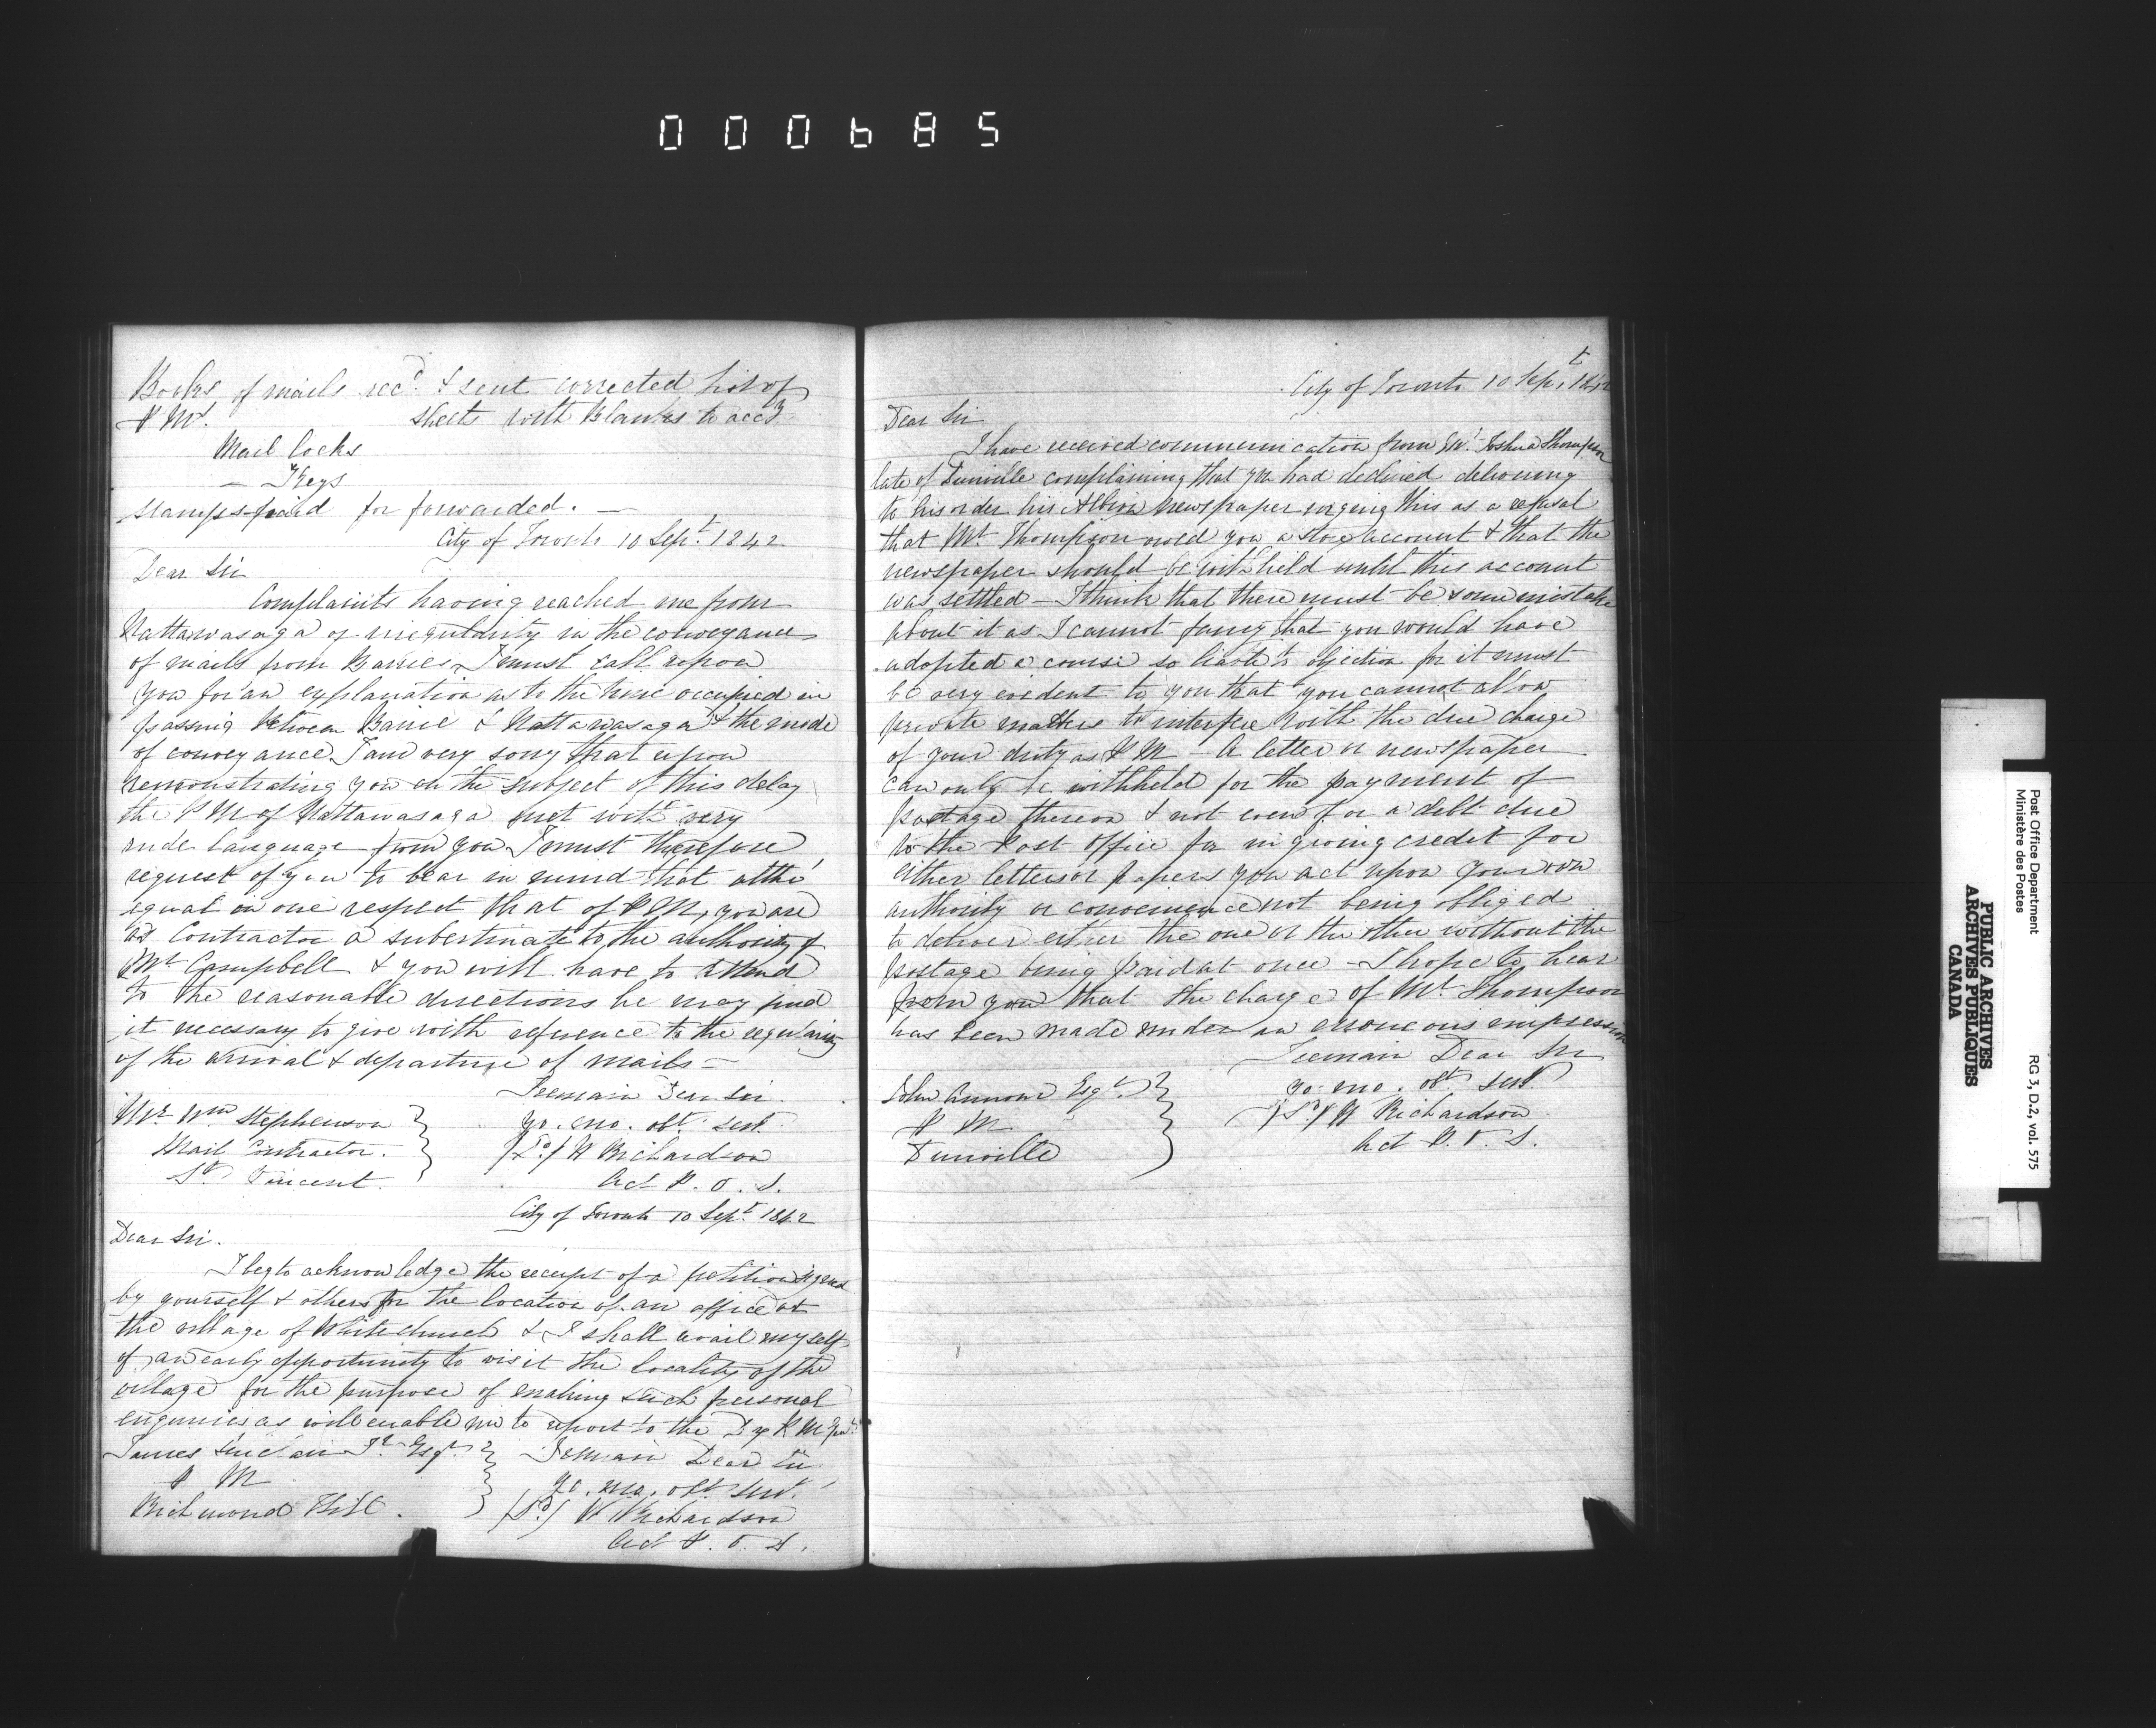 000685
Books of mails recd. & sent corrected list of
P Ms. sheets with Blanks to accd
Mail Locks
— Keys
Stamps paid for forwarded. —
City of Toronto 10 Sept. 1842
Dear Sir
Complaints having reached me from
Nattawasaga of irregularity in the conveyance
of mails from Barrie, I must call upon
you for an explanation as to the time occupied in
passing between Barrie & Nattawasaga & the mode
of conveyance I am very sorry that upon
remonstrating you on the subject of this delay
the P M of Nattawasaga met with very
rude language from you I must therefore
request of you to bear in mind that altho'
equal in one respect that of P M, you are
as Contractor a subordinate to the authority of
Mr Campbell & you will have to attend
to the reasonable directions he may find
it necessary to give with reference to the regularity
of the arrival & departure of mails —
I remain Dear Sir.
Mr Wm Stephenson yo. mo. obt. servt.
Mail Contractor. (Sd.) W Richardson
St Vincent. Act P. O. S.
City of Toronto 10 Sept. 1842
Dear Sir.
I beg to acknowledge the receipt of a petition signed
by yourself & others for the location of an office at
the village of Whitchurch & I shall avail myself
of an early opportunity to visit the locality of the
village for the purpose of making such personal
enquiries as will enable me to report to the Dy P M Genl.
James Sinclair Jr. Esqr. I remain Dear Sir
P M yo. mo. obt. servt.
Richmond Hill. (Sd.) W Richardson
Act P. O. S.
City of Toronto 10 Sept. 1842
Dear Sir
I have received communication from Mr. Joshua Thompson
late of Dunville complaining that you had declined delivering
to his order his Albion newspaper urging this as a refusal
that Mr. Thompson owed you a store account & that the
newspaper should be withheld until this account
was settled — I think that there must be some mistake
about it as I cannot fancy that you would have
adopted a course so liable to objection for it must
be very evident to you that you cannot allow
private matters to interfere with the due charge
of your duty as P M — A letter or newspaper
can only be withheld for the payment of
postage thereon & not even for a debt due
to the Post Office for in giving credit for
either letters or papers you act upon your own
authority or convenience not being obliged
to deliver either the one or the other without the
postage being paid at once — I hope to hear
from you that the charge of Mr. Thompson
has been made under an erroneous impression
I remain Dear Sir
John Armour Esqr. yo. mo. obt. servt.
P M (Sd.) W Richardson
Dunville Act P. O. S.
Post Office Department
Ministère des Postes
RG 3, D.2, vol. 575
PUBLIC ARCHIVES
ARCHIVES PUBLIQUES
CANADA